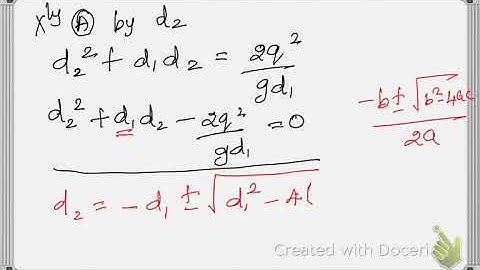 x^ly Ⓐ by d₂
d₂² + d₁d₂ = 2q²/gd₁
d₂² + d₁d₂ − 2q²/gd₁ = 0
−b ± √(b²−4ac / 2a
d₂ = −d₁ ± √(d₁² − 4(
Created with Doceri